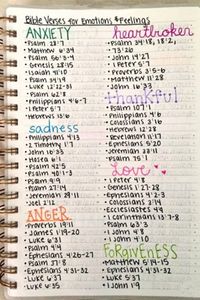 Bible Verses for Emotions & Feelings
ANXIETY
• Psalm 28:7
• Matthew 6:34
• Psalm 56:3-4
• Genesis 28:15
• Isaiah 41:10
• Psalm 34:19
• Luke 12:22-31
• Psalm 62:8
• Philippians 4:6-7
• 1 Peter 5:7
• Hebrews 13:6
sadness
• Philippians
• 2 Timothy 1:7
• John 16:33
• Hosea 6:1
• Psalm 42:5
• Psalm 40:1-3
• Psalm 9:9
• Psalm 27:14
• Jeremiah 29:11
• Joel 2:12
ANGER
• Proverbs 19:11
• James 1:19-20
• Luke 6:31
• Psalm 4:4
• Ephesians 4:26-27
• Psalm 37:8
• Ephesians 4:31-32
• Luke 6:37
• Luke 6:35
heartbroken
• Psalm 34:18, 18:2,
73:26
• John 14:27
• 1 Peter 5:7
• Proverbs 3:5-6
• Matthew 11:28
• John 16:33
thankful
• Psalm 107:1
• Philippians 4:6
• Colossians 3:16
• Hebrews 12:28
• Revelation 11:17
• Ephesians 5:20
• Jeremiah 33:11
• Psalm 75:1
Love
• 1 Peter 4:8
• Genesis 1:27-28
• Ephesians 4:2-3
• Colossians 3:14
• Ecclesiastes 4:9
• Corinthians 13:7-8
• Psalm 63:3
• 1 John 4:8
• John 4:10
FORGIVENESS
• Matthew 5:14-15
• Ephesians 4:31-32
• Luke 6:37
• 1 John 1:9